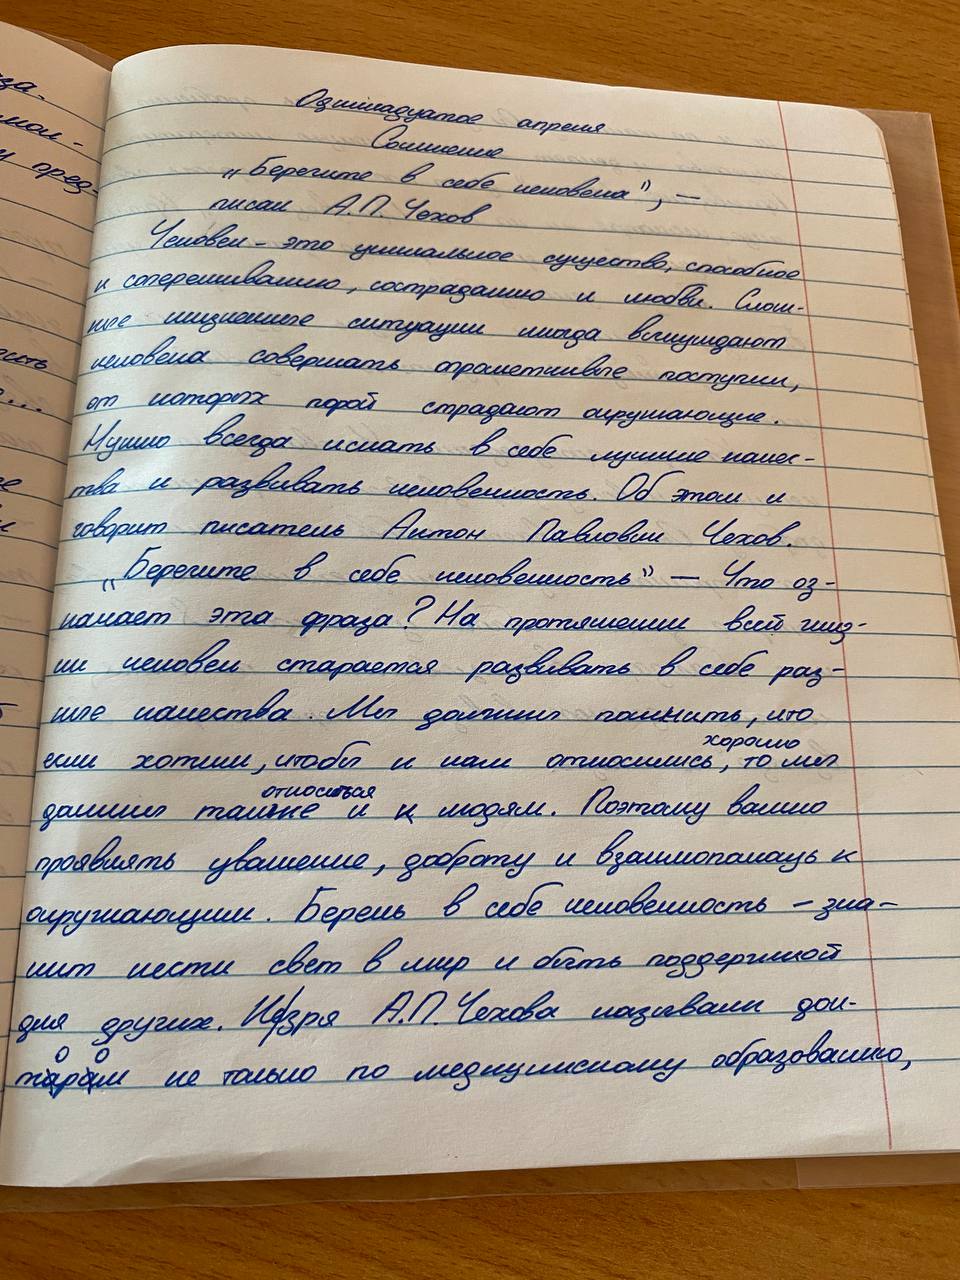 за.
мол-
и пред-
Одиннадцатое апреля
Сочинение
„Берегите в себе человека", —
писал А.П. Чехов
Человек - это уникальное существо, способное
к сопереживанию, состраданию и любви. Слож-
ные жизненные ситуации иногда вынуждают
человека совершать опрометчивые поступки,
от которых порой страдают окружающие.
Нужно всегда искать в себе лучшие качес-
тва и развивать человечность. Об этом и
говорит писатель Антон Павлович Чехов.
„Берегите в себе человечность" — Что оз-
начает эта фраза? На протяжении всей жиз-
ни человек старается развивать в себе раз-
ные качества. Мы должны помнить, что
хорошо
если хотим, чтобы к нам относились, то мы
относиться
должны также и к людям. Поэтому важно
проявлять уважение, доброту и взаимопомощь к
окружающим. Беречь в себе человечность – зна-
чит нести свет в мир и быть поддержкой
для других. Не зря А.П. Чехова называли док-
тором не только по медицинскому образованию,